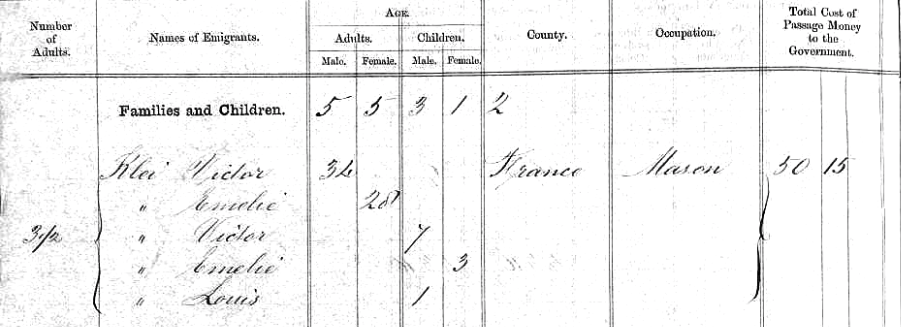 Number of Adults. Names of Emigrants. AGE. Adults. Male. Female. Children. Male. Female. County. Occupation. Total Cost of Passage Money to the Government.
Families and Children. 5 5 3 1 2
Klei Victor 34 France Mason 50 15
" Emelie 28
3 1/2 " Victor 7
" Emelie 3
" Louis 1